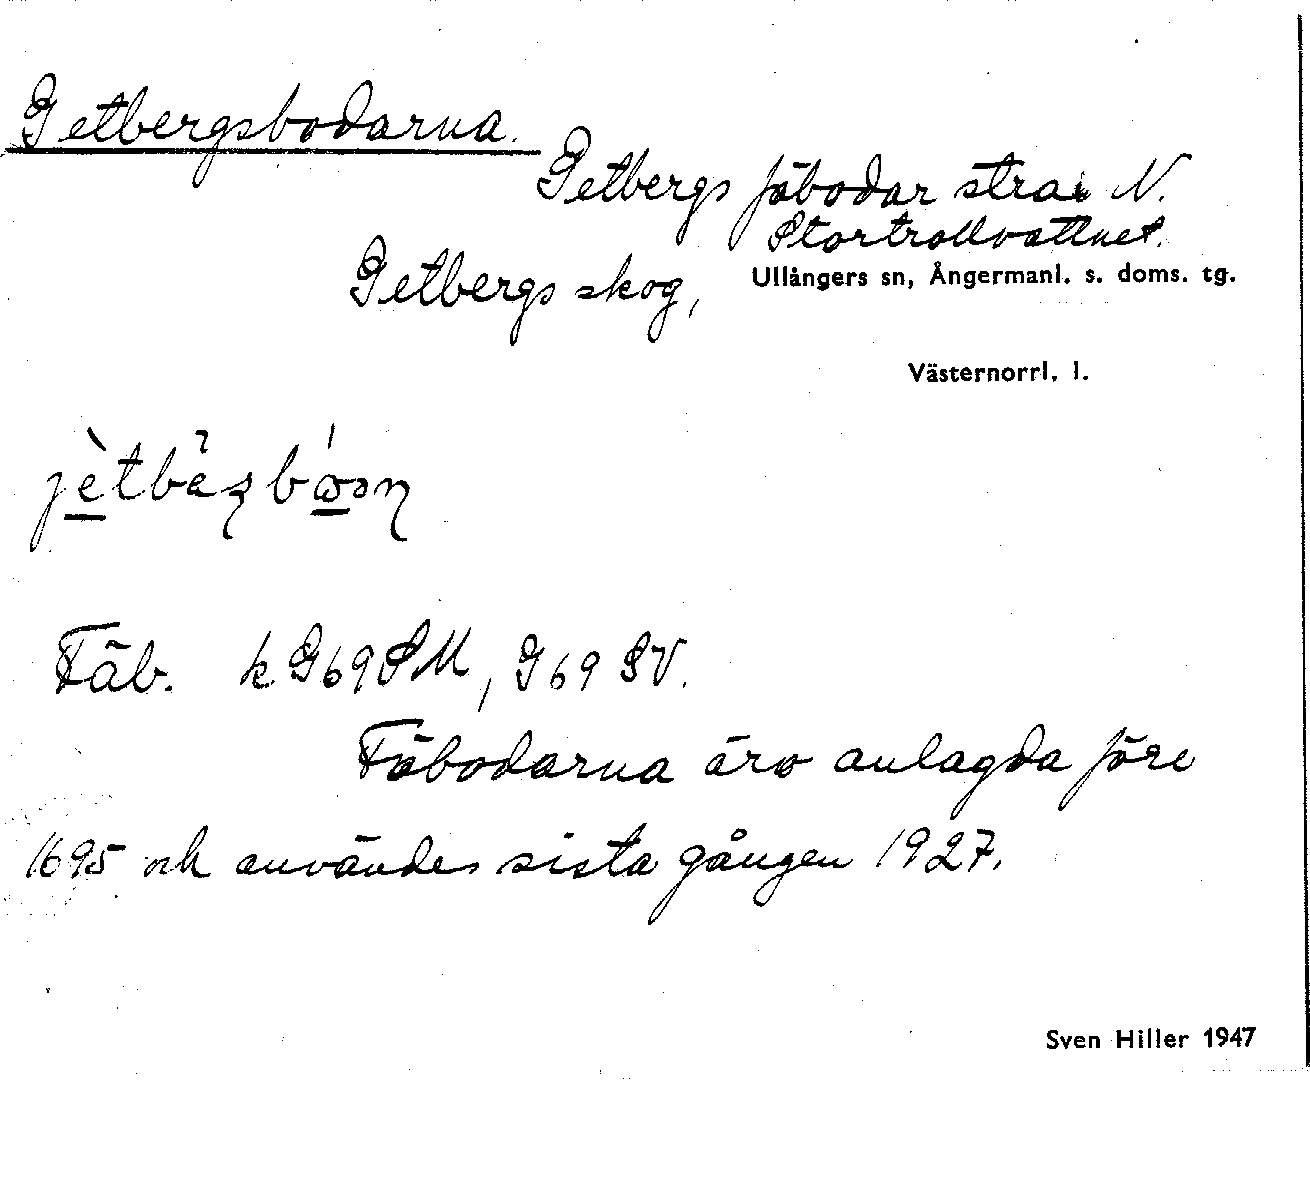 Getbergsbodarna.
Getbergs fäbodar strax N.
Stortrollvattnet.
Getbergs skog,
Ullångers sn, Ångermanl. s. doms. tg.
Västernorrl. l.
Fäb. k G69SM, G69 SV.
Fäbodarna äro anlagda före
1695 och användes sista gången 1927.
Sven Hiller 1947